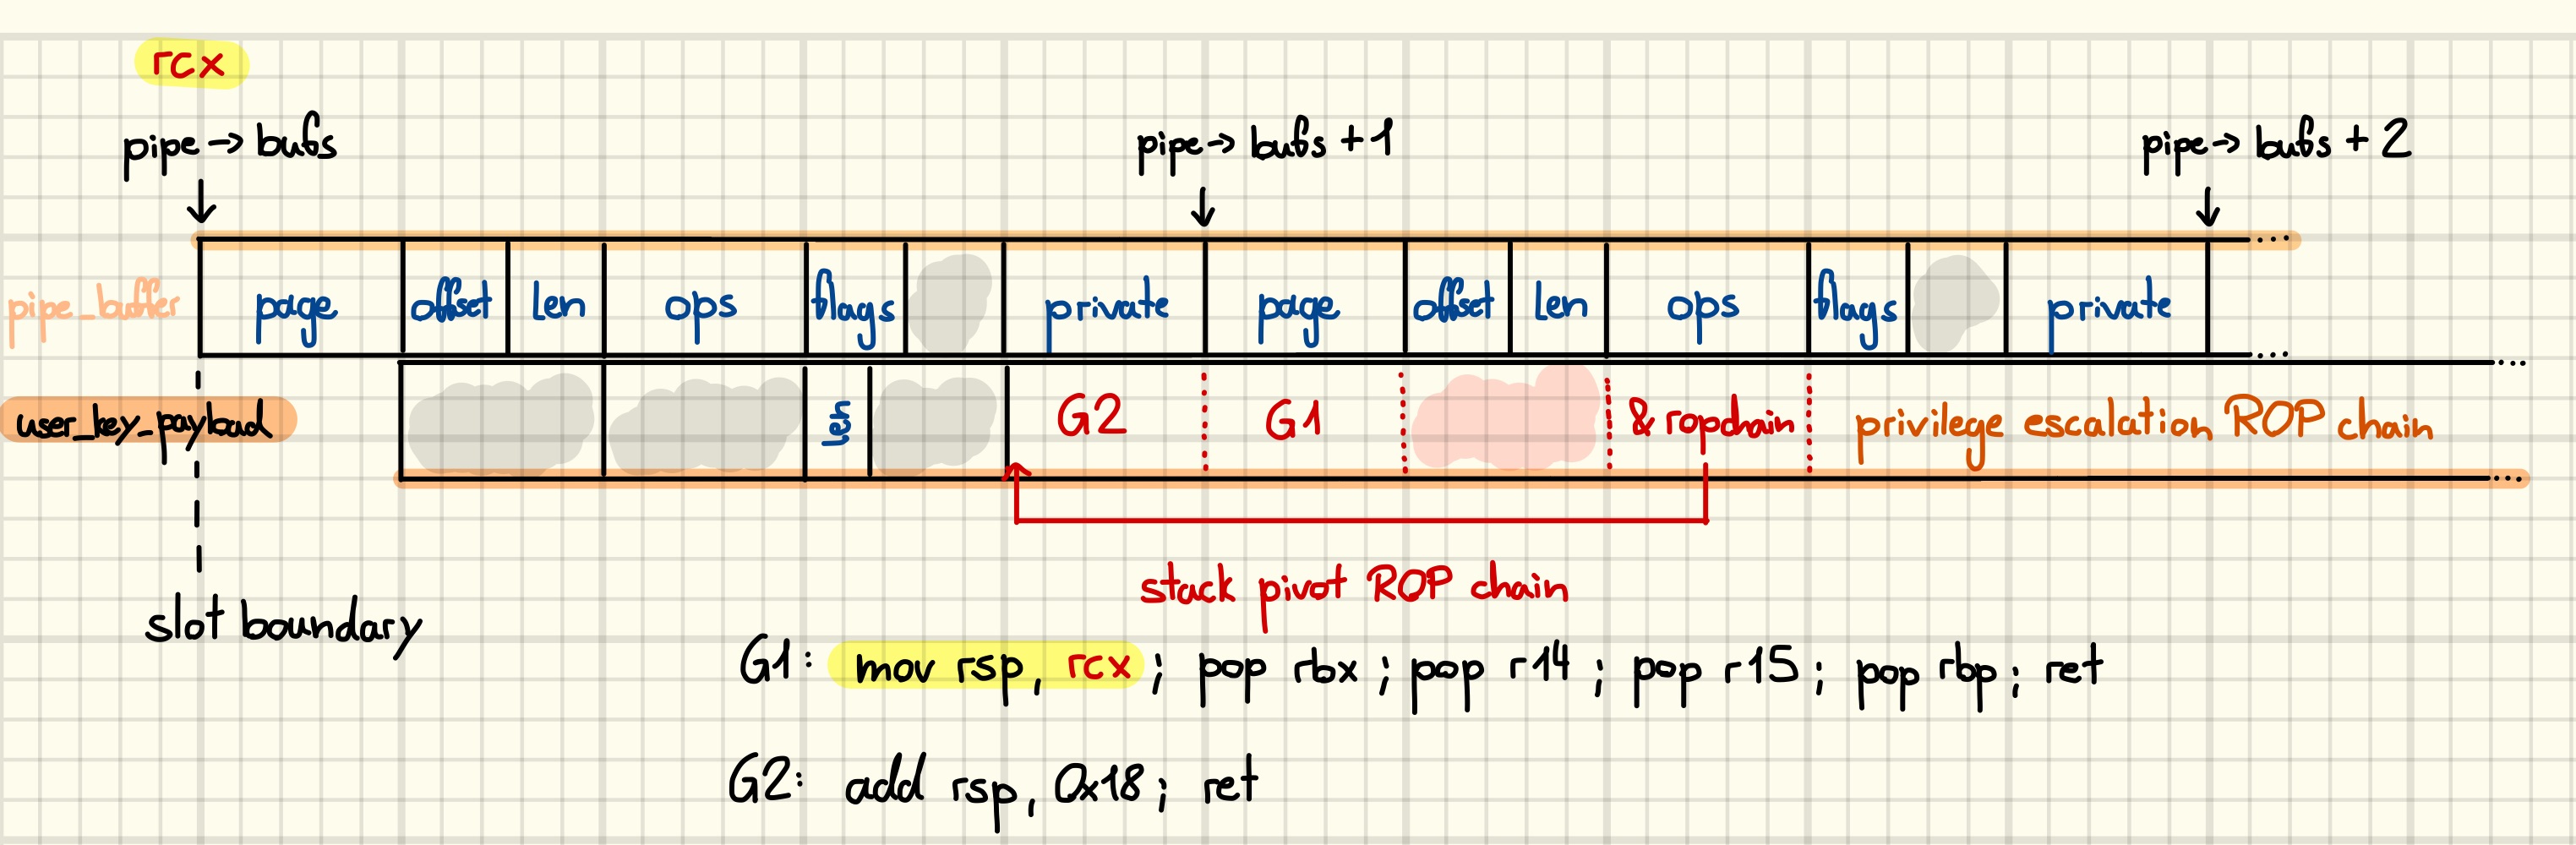 rcx
pipe -> bufs
pipe -> bufs + 1
pipe -> bufs + 2
pipe_buffer
page offset len ops flags private page offset len ops flags private
user_key_payload
G2 G1 & ropchain privilege escalation ROP chain
stack pivot ROP chain
slot boundary
G1: mov rsp, rcx ; pop rbx ; pop r14 ; pop r15 ; pop rbp ; ret
G2: add rsp, 0x18 ; ret